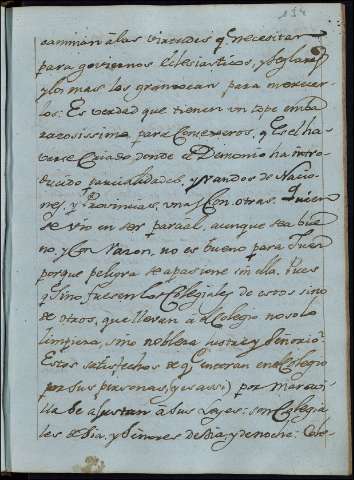 154
caminan â las virtudes q̃ necesitan
para goviernos Eclesiasticos, y Seglares
y los mas los grangean para merecer
los: Es verdad que tienen un tope emba
racosissimo para Consejeros, q̃ Es el ha
verse Criado donde el Demonio ha intro
ducido parcialidades, y Vandos de Nacio
nes, y Provincias, unas Con otras. Quien
se vio en ser parcial, aunque sea bue
no, y Con Razon, no es bueno para Juez
porque peligra se apasione sin ella. Pues
q̃ si no fuesen los Colegiales de estos sino
de otros, que llevan â el Colegio no solo
limpieza, sino nobleza ilustre, y Señorio?
Estos satisfechos de q̃ entraran en el Colegio
por sus personas, (y es assi) por maravi
lla Se ajustan a sus Leyes: son Colegia
les de dia, y Señores de dia, y de noche: Cele-